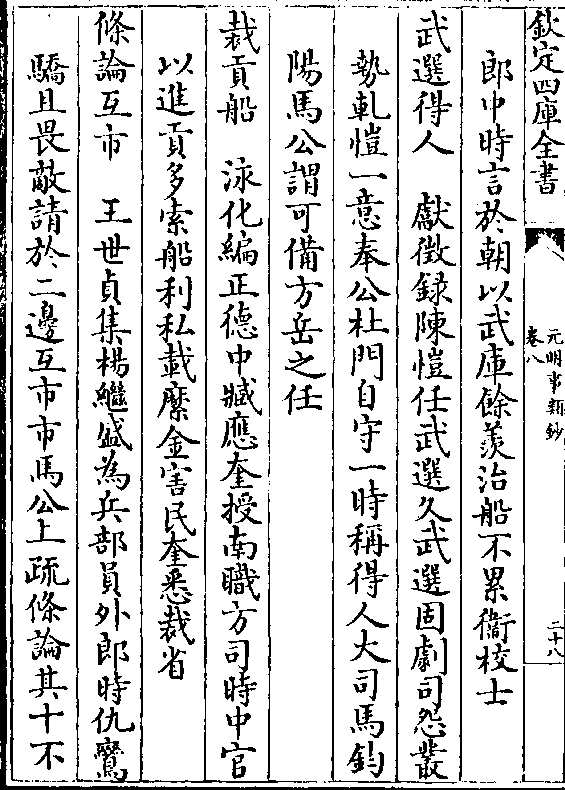 欽定四庫全書
元明事類鈔
卷八
二十八
郎中時言於朝以武庫餘羨治船不累衞校士
武選得人　獻徵録陳愷任武選久武選固劇司怨叢
勢軋愷一意奉公杜門自守一時稱得人大司馬鈞
陽馬公謂可備方岳之任
裁貢船　泳化編正德中臧應奎授南職方司時中官
以進貢多索船利私載縻金害民奎悉裁省
條論互市　王世貞集楊繼盛為兵部員外郎時仇鸞
驕且畏敵請於二邊互市市馬公上疏條論其十不